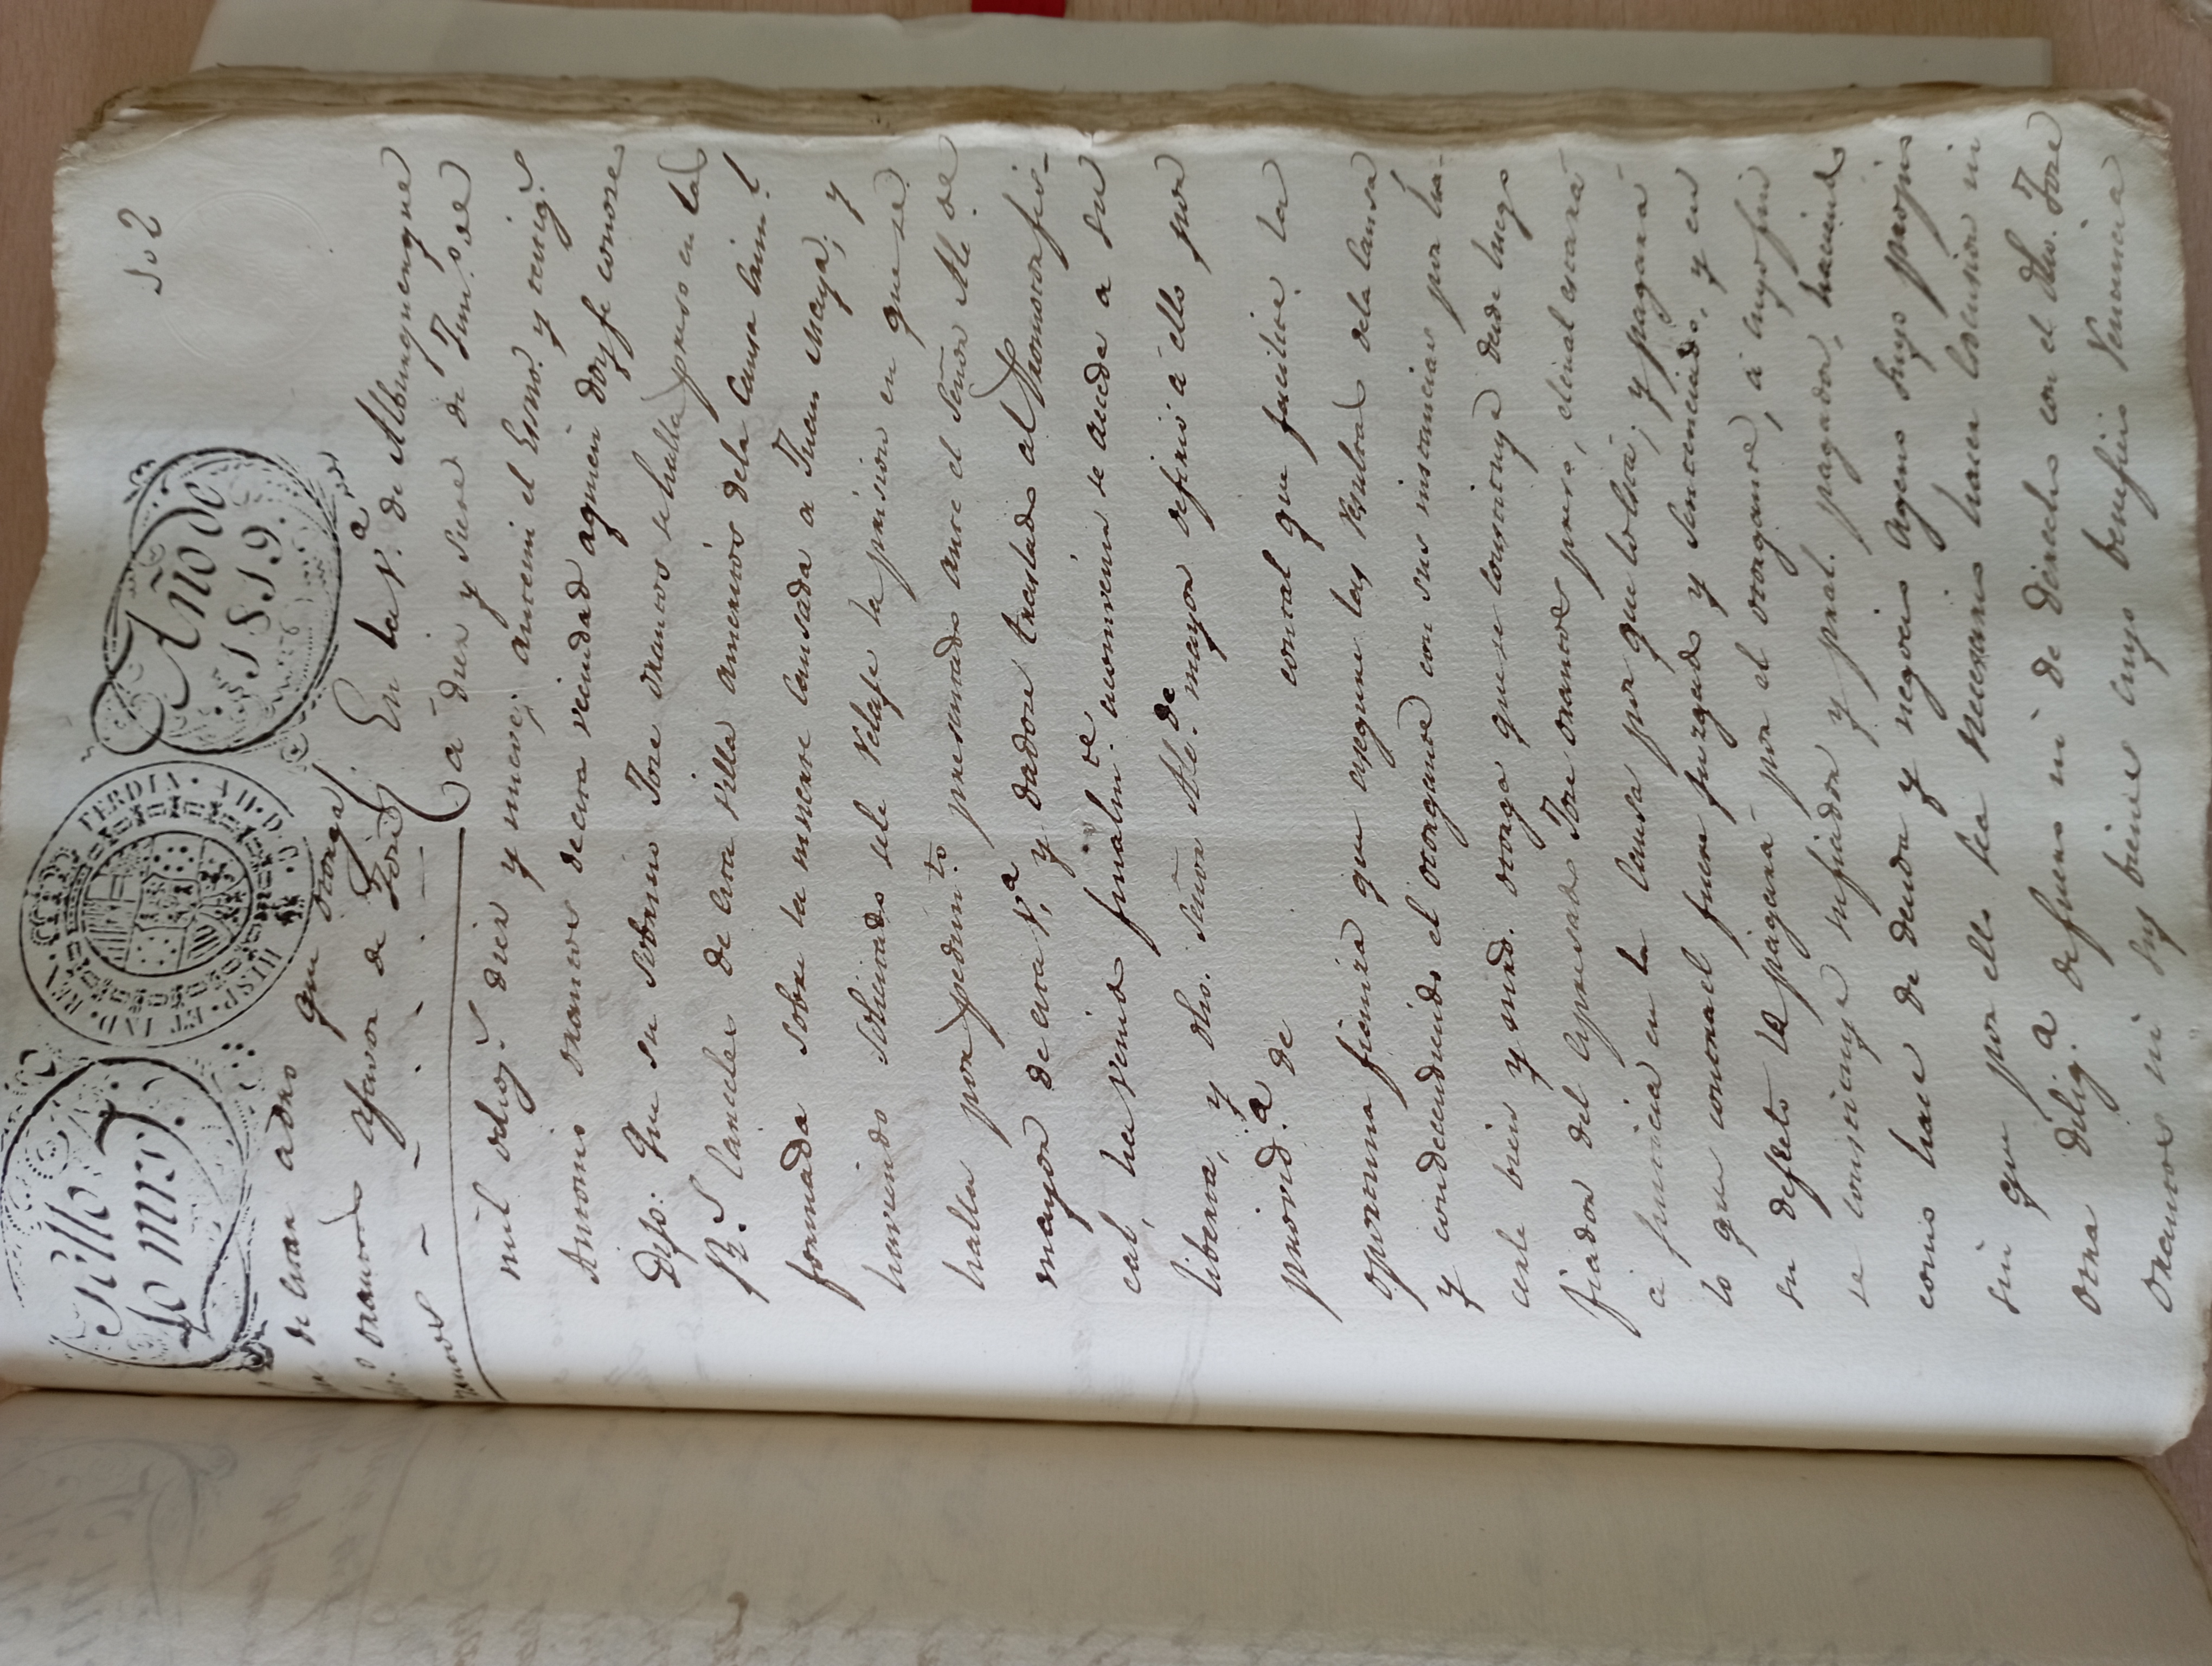 Sello
40 mrs.
HISP. ET IND. REX. FERDIN. VII. D. G.
Año de
1819.
102
de estar adro que otorga
Orantos afavor de José
Orantos - - . . . -
En la V.ª de Alburquerque
á diez y siete de Jun.º de
mil ochoz.s diez y nueve; antemi el Essno. y testig.s
Antonio Orantos de esta vecindad aquien doyfe conosco
Dijo: Que su Sobrino Jose Orantos se halla preso en las
R.s Carceles de esta Villa amerítos dela Causa Crim.l
formada sobre la muerte Causada a Juan Maya; y
haviendo Solicitado sele Relaje la prision en que se
halla por pedim.to presentado ante el Señor Alc.de
mayor de esta V.ª y dadose traslado al Promotor fis-
cal, ha venido finalm.te aconvenir se acceda a su
liberta, y dho. Señor Alc.de mayor defirió á ello por
provid.ª de contal que facilite la
oportuna fianza que asegure las Resultas dela Causa
y condecendiendo el otorgante con sus instancias por ha-
cerle bien y mrd. otorga que se Constituye desde luego
fiador del Expresado Jose Orantos preso, elcual estará
á Justicia en la Causa por que lo Está; y pagará
lo que contrael fuere Juzgado y Sentenciado, y en
su defecto lo pagará por el otorgante, á cuyo fin
se constituye sufiador y pral. pagador, haciendo
como hace de deuda y negocio ageno suyo propio
sin que por ello sea necesario hacer Escusion ni
otra dilig.ª defuero ni de derecho con el dho. Jose
Orantos ni sus bienes cuyo beneficio Renuncia